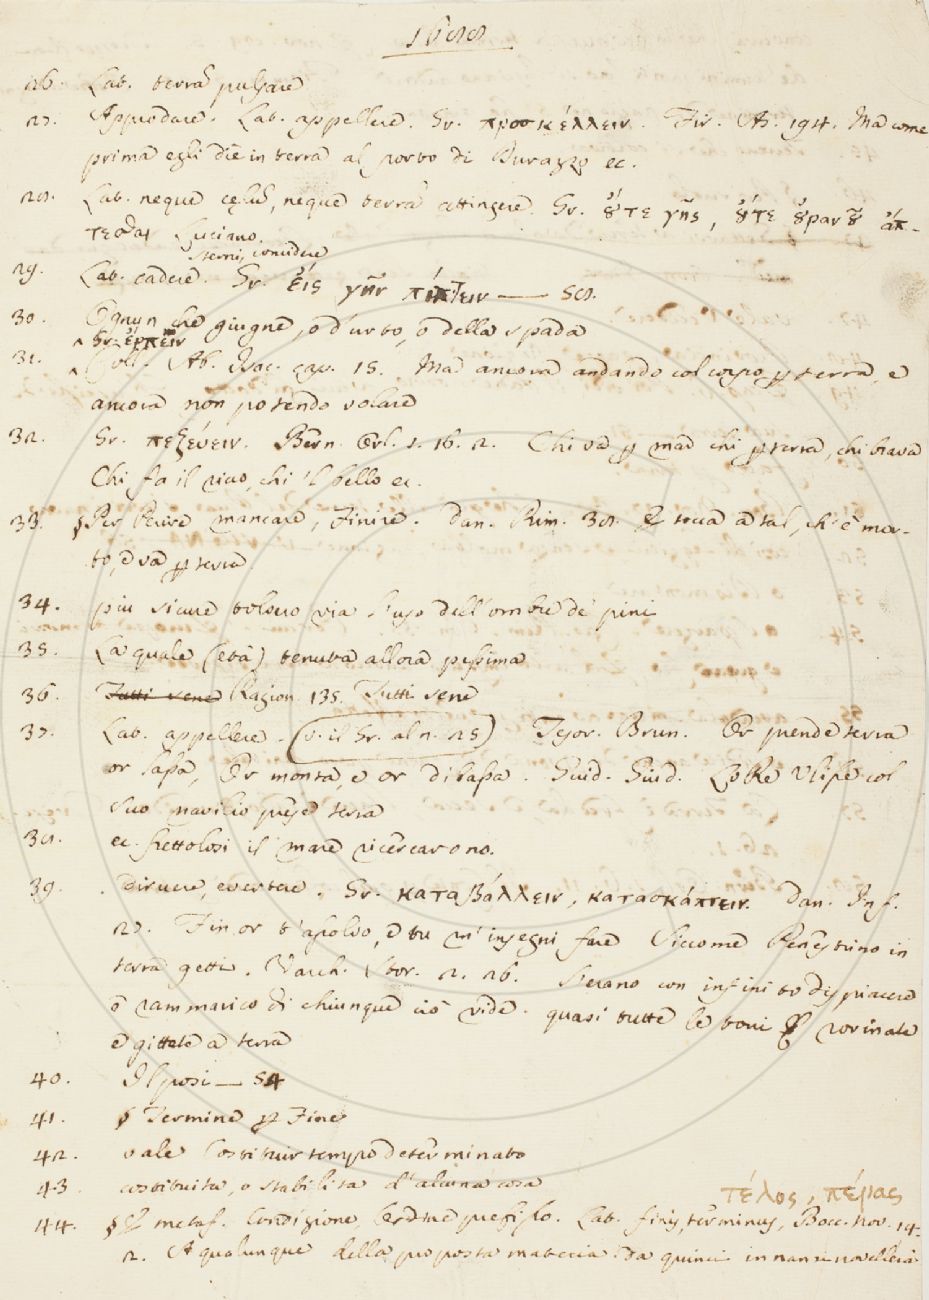 1688
26. Lat. terrã pulsare
27. Approdare. Lat. appellere. Gr. προσκέλλειν. Fir. As. 194. Ma come
prima egli diè in terra al porto di Durazzo ec.
28. Lat. neque cęlũ, neque terrã attingere. Gr. ȣ̓́τε γῆς, ȣ̓́τε ȣ̓ρανȣ̃ ἅπ-
τεσθαι Luciano.
sterni, concidere
29. Lat. cadere. Gr. εἰς γῆν πίπτειν — 58.
30. Ognun che giugne, o d'urto, o della spada
^ Gr. ἕρπειν
31. ^ Coll. Ab. Isac. cap. 15. Ma ancora andando col corpo p terra, e
ancora non potendo volare
32. Gr. πεζεύειν. Bern. Orl. 1. 16. 2. Chi va p mar chi p terra, chi brava
Chi fa il ricco, chi 'l bello ec.
33. § Per Perire mancare, Finire. Dan. Rim. 38. E tocca a tal, ch'è mor-
to, e va p terra.
34. più sicure tolsero via l'uso dell'ombre de' pini
35. La quale (età) tenuta allora pessima
36. Tutti sene Ragion. 135. Tutti sene
37. Lat. appellere. (v. il Gr. al n. 25) Tesor. Brun. Or prende terra
or lassa, Or monta, e or dibassa. Guid. Giud. Lo Re Ulisse col
suo navilio prese terra
38. ec. frettolosi il mare ricercarono.
39. . Diruere, evertere. Gr. καταβάλλειν, κατασκάπτειν. Dan. Inf.
27. Fin, or t'assolvo, e tu m'insegni fare Siccome Penestrino in
terra getti. Varch. Stor. 2. 26. Erano con infinito dispiacere
e rammarico di chiunque ciò vide. quasi tutte le torri rovinate
e gittate a terra
40. Il posi — 54
41. § Termine p Fine
42. vale Costituir tempo determinato
43. costituita, o stabilita d'alcuna cosa
τέλος, πέρας
44. § metaf. Condizione, prefisso. Lat. finis, terminus, Bocc. nov. 14.
2. A qualunque della proposta materia da quinci innanzi novellerà